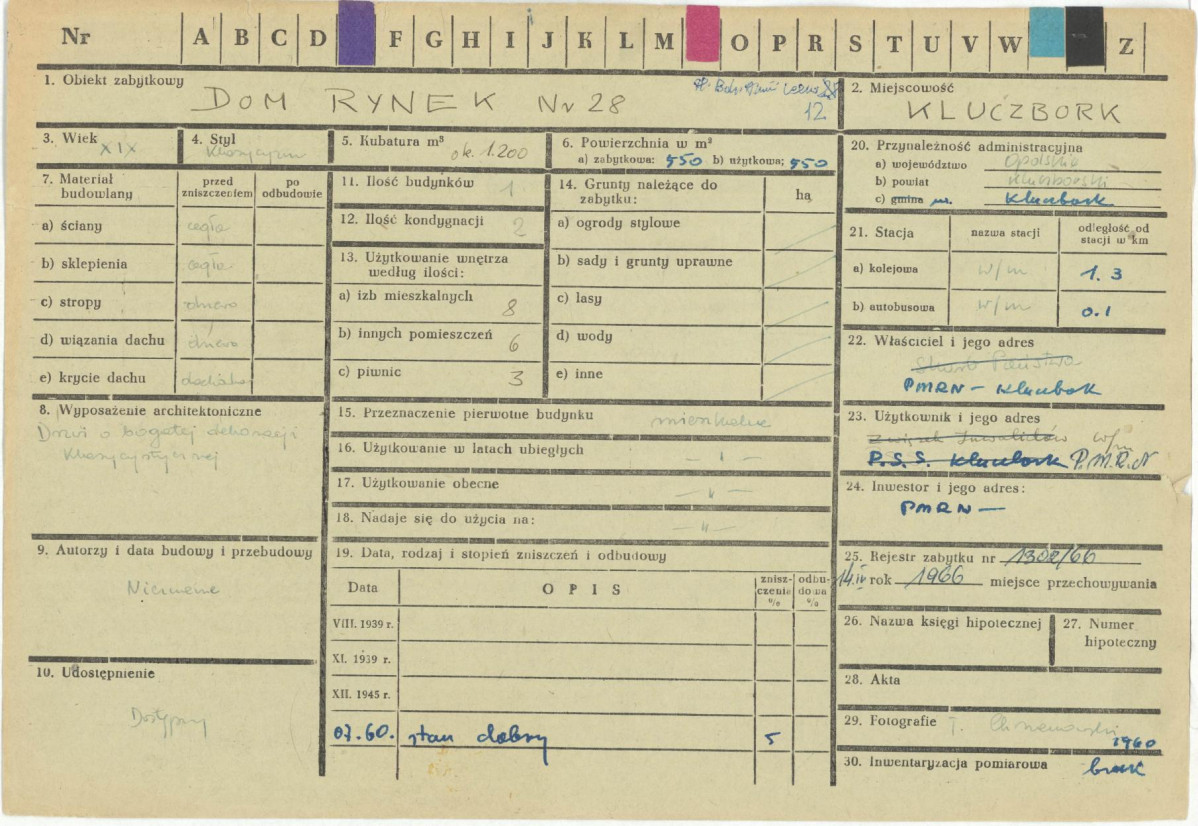 Nr A B C D F G H I J K L M O P R S T U V W Z
1. Obiekt zabytkowy
DOM RYNEK Nr 28
12
2. Miejscowość
KLUCZBORK
3. Wiek XIX
4. Styl Klasycyzm
5. Kubatura m³ ok. 1.200
6. Powierzchnia w m²
a) zabytkowa: 550 b) użytkowa; 550
7. Materiał budowlany
przed zniszczeniem
po odbudowie
a) ściany cegła
b) sklepienia cegła
c) stropy drewno
d) wiązania dachu drewno
e) krycie dachu
8. Wyposażenie architektoniczne
Drzwi o bogatej dekoracji
klasycystycznej
9. Autorzy i data budowy i przebudowy
Nieznane
10. Udostępnienie
Dostępny
11. Ilość budynków 1
12. Ilość kondygnacji 2
13. Użytkowanie wnętrza
według ilości:
a) izb mieszkalnych 8
b) innych pomieszczeń 6
c) piwnic 3
14. Grunty należące do
zabytku:
ha
a) ogrody stylowe
b) sady i grunty uprawne
c) lasy
d) wody
e) inne
15. Przeznaczenie pierwotne budynku mieszkalne
16. Użytkowanie w latach ubiegłych — " —
17. Użytkowanie obecne — " —
18. Nadaje się do użycia na: — " —
19. Data, rodzaj i stopień zniszczeń i odbudowy
Data
OPIS
znisz-
czenia
%
odbu-
dowa
%
VIII. 1939 r.
XI. 1939 r.
XII. 1945 r.
07.60. stan dobry 5
20. Przynależność administracyjna
a) województwo Opolskie
b) powiat Kluczborski
c) gmina m. Kluczbork
21. Stacja
nazwa stacji
odległość od
stacji w km
a) kolejowa w/m 1.3
b) autobusowa w/m 0.1
22. Właściciel i jego adres
Skarb Państwa
PMRN — Kluczbork
23. Użytkownik i jego adres
Związek Inwalidów w/m
P.S.S. Kluczbork P.M.R.N
24. Inwestor i jego adres:
PMRN —
25. Rejestr zabytku nr 1302/66
14.IV rok 1966 miejsce przechowywania
26. Nazwa księgi hipotecznej
27. Numer
hipoteczny
28. Akta
29. Fotografie
1960
30. Inwentaryzacja pomiarowa brak